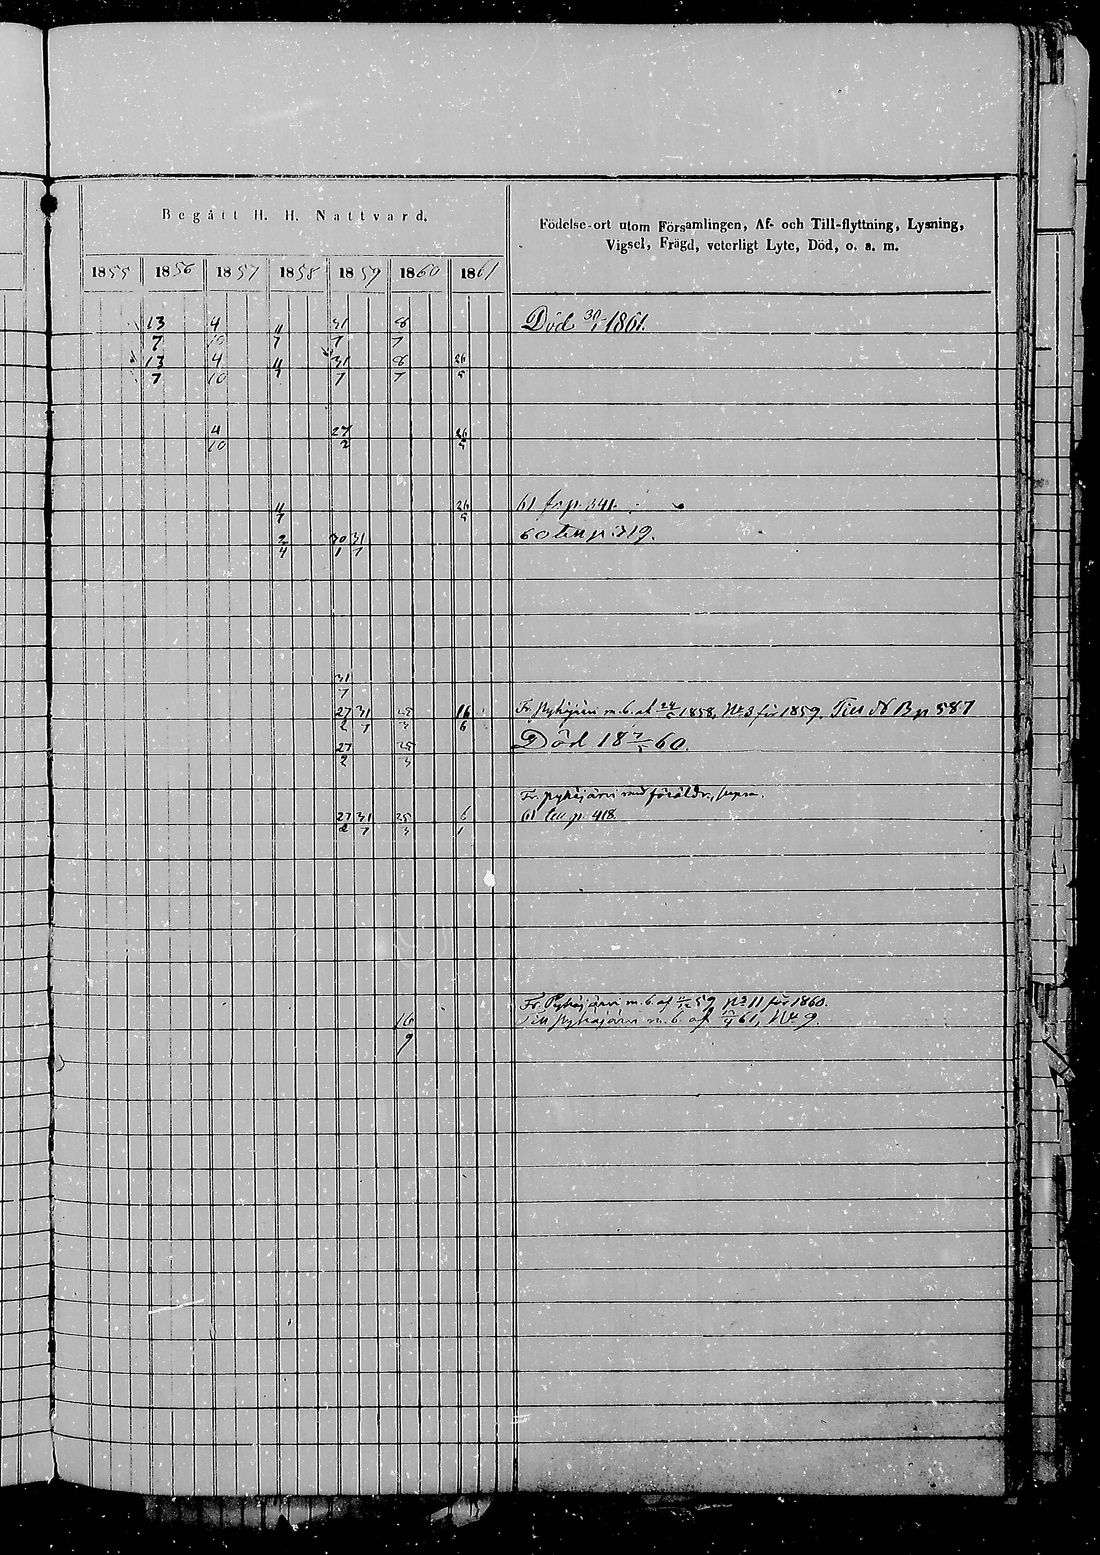 Begått H. H. Nattvard.
Födelse-ort utom Församlingen, Af- och Till-flyttning, Lysning,
Vigsel, Frägd, veterligt Lyte, Död, o. a. m.
1855 1856 1857 1858 1859 1860 1861
13 4 4 31 8 Död 30/1 1861.
7 10 7 7 7
13 4 4 31 8 26
7 10 7 7 7 5
4 27 26
10 2 5
4 26 61 fr p. 341.
7 5
2 30 31 60 till p. 319.
4 1 7
31
7
27 31 25 16 Fr. Pyhäjärvi m. b. af 1858, No 3 för 1859. Till No B p 587
2 7 3 6
27 25 Död 18 7/5 60.
2 3
Fr. Pyhäjärvi med föräldr., supra.
27 31 25 6 61 till p. 418
2 7 3 1
Fr. Pyhäjärvi m. b. af 59 No 11 för 1860.
16 Till Pyhäjärvi m. b. af 61, No 9.
9